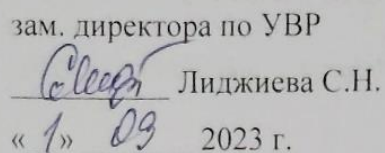 зам. директора по УВР
Лиджиева С.Н.
« 1» 09 2023 г.